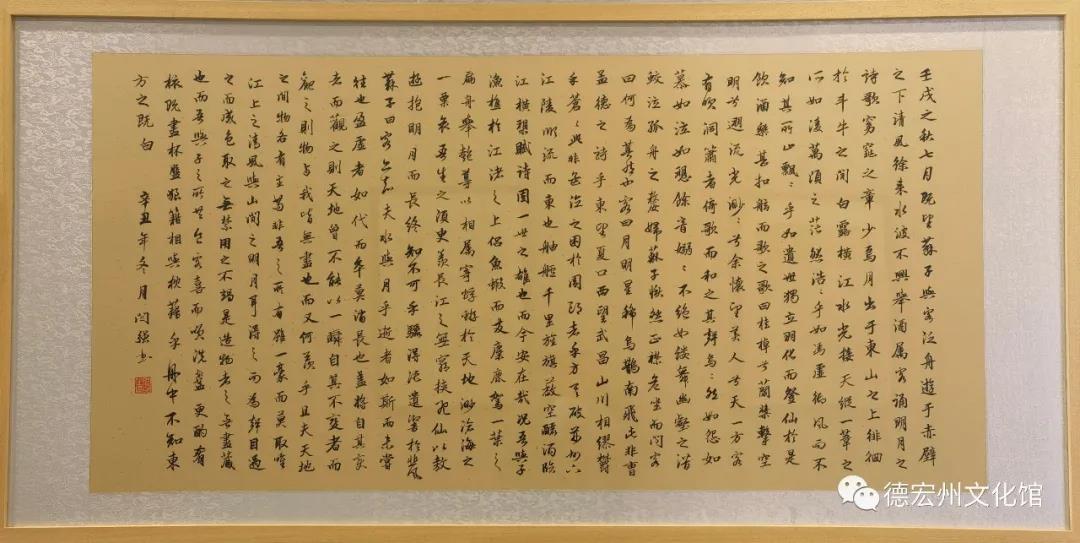 壬戌之秋七月既望蘇子與客泛舟遊于赤壁
之下清風徐来水波不興舉酒属客誦明月之
詩歌窈窕之章少焉月出于東山之上徘徊
於斗牛之间白露橫江水光接天縱一葦之
所如淩萬頃之茫然浩浩乎如馮虛御風而不
知其所止飄飄乎如遺世獨立羽化而登仙於是
飲酒樂甚扣舷而歌之歌曰桂棹兮蘭槳擊空
明兮遡流光渺渺兮余懷望美人兮天一方客
有吹洞簫者倚歌而和之其聲烏烏然如怨如
慕如泣如餘音嫋嫋不絕如縷舞幽壑之潛
蛟泣孤舟之嫠婦蘇子愀然正襟危坐而问客
曰何為其然也客曰月明星稀烏鵲南飛此非曹
孟德之詩乎東望夏口西望武昌山川相繆鬱
乎蒼蒼此非孟德之困於周郎者乎方其破荊州下
江陵順流而東也舳艫千里旌旗蔽空釃酒臨
江橫槊賦詩固一世之雄也而今安在哉況吾與子
漁樵於江渚之上侶魚蝦而友麋鹿駕一葉之
扁舟舉匏尊以相属寄蜉蝣於天地渺滄海之
一粟哀吾生之須臾羨長江之無窮挾飛仙以遨
遊抱明月而長終知不可乎驟得托遺響於悲風
蘇子曰客亦知夫水與月乎逝者如斯而未嘗
往也盈虛者如代而卒莫消長也蓋將自其變
者而觀之則天地曾不能以一瞬自其不變者而
觀之則物与我皆無盡也而又何羨乎且夫天地
之間物各有主苟非吾之所有雖一豪而莫取惟
江上之清風與山間之明月耳得之而為聲目遇
之而成色取之無禁用之不竭是造物者之無盡藏
也而吾與子之所共食客喜而笑洗盞更酌肴
核既盡杯盤狼籍相與枕藉乎舟中不知東
方之既白 辛丑年冬月闫强书
德宏州文化馆